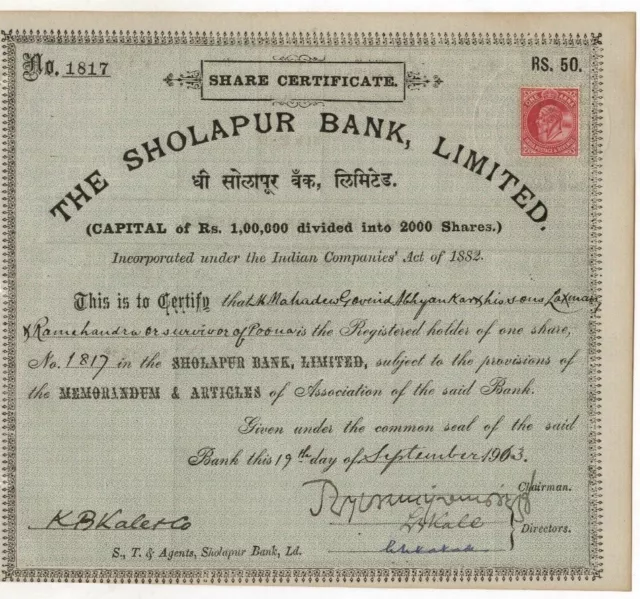 No. 1817
SHARE CERTIFICATE.
RS. 50.
THE SHOLAPUR BANK, LIMITED.
धी सोलापूर बँक, लिमिटेड.
(CAPITAL of Rs. 1,00,000 divided into 2000 Shares.)
Incorporated under the Indian Companies' Act of 1882.
This is to Certify that Mahadev Govind Abhyankar & his sons Laxman
& Ramchandra or survivor of Poona is the Registered holder of one share,
No. 1817 in the SHOLAPUR BANK, LIMITED, subject to the provisions of
the MEMORANDUM & ARTICLES of Association of the said Bank.
Given under the common seal of the said
Bank this 19th day of September 1903.
Chairman.
K B Kale & Co
Kale
Directors.
S., T. & Agents, Sholapur Bank, Ld.